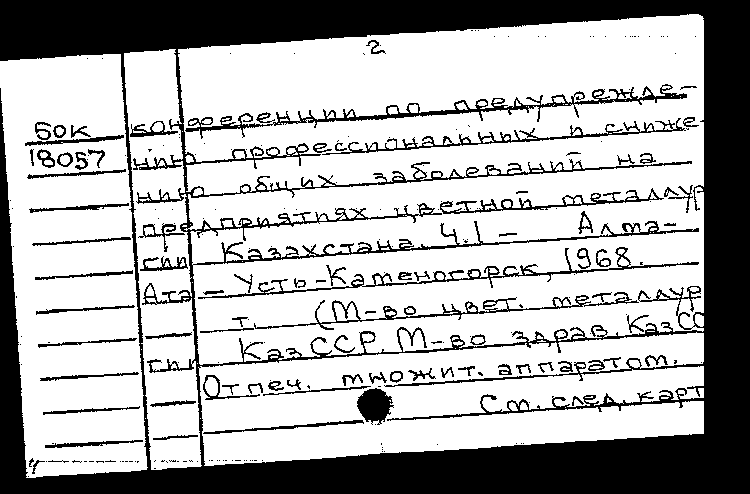 2
бок конференции по предупрежде-
18057 нию профессиональных и сниже-
нию общих заболеваний на
предприятиях цветной металлур
гии Казахстана. Ч.1 – Алма-
Ата – Усть-Каменогорск, 1968.
т. (М-во цвет. металлур
гии КазССР. М-во здрав. КазСС
Отпеч. множит. аппаратом.
См. след. карт